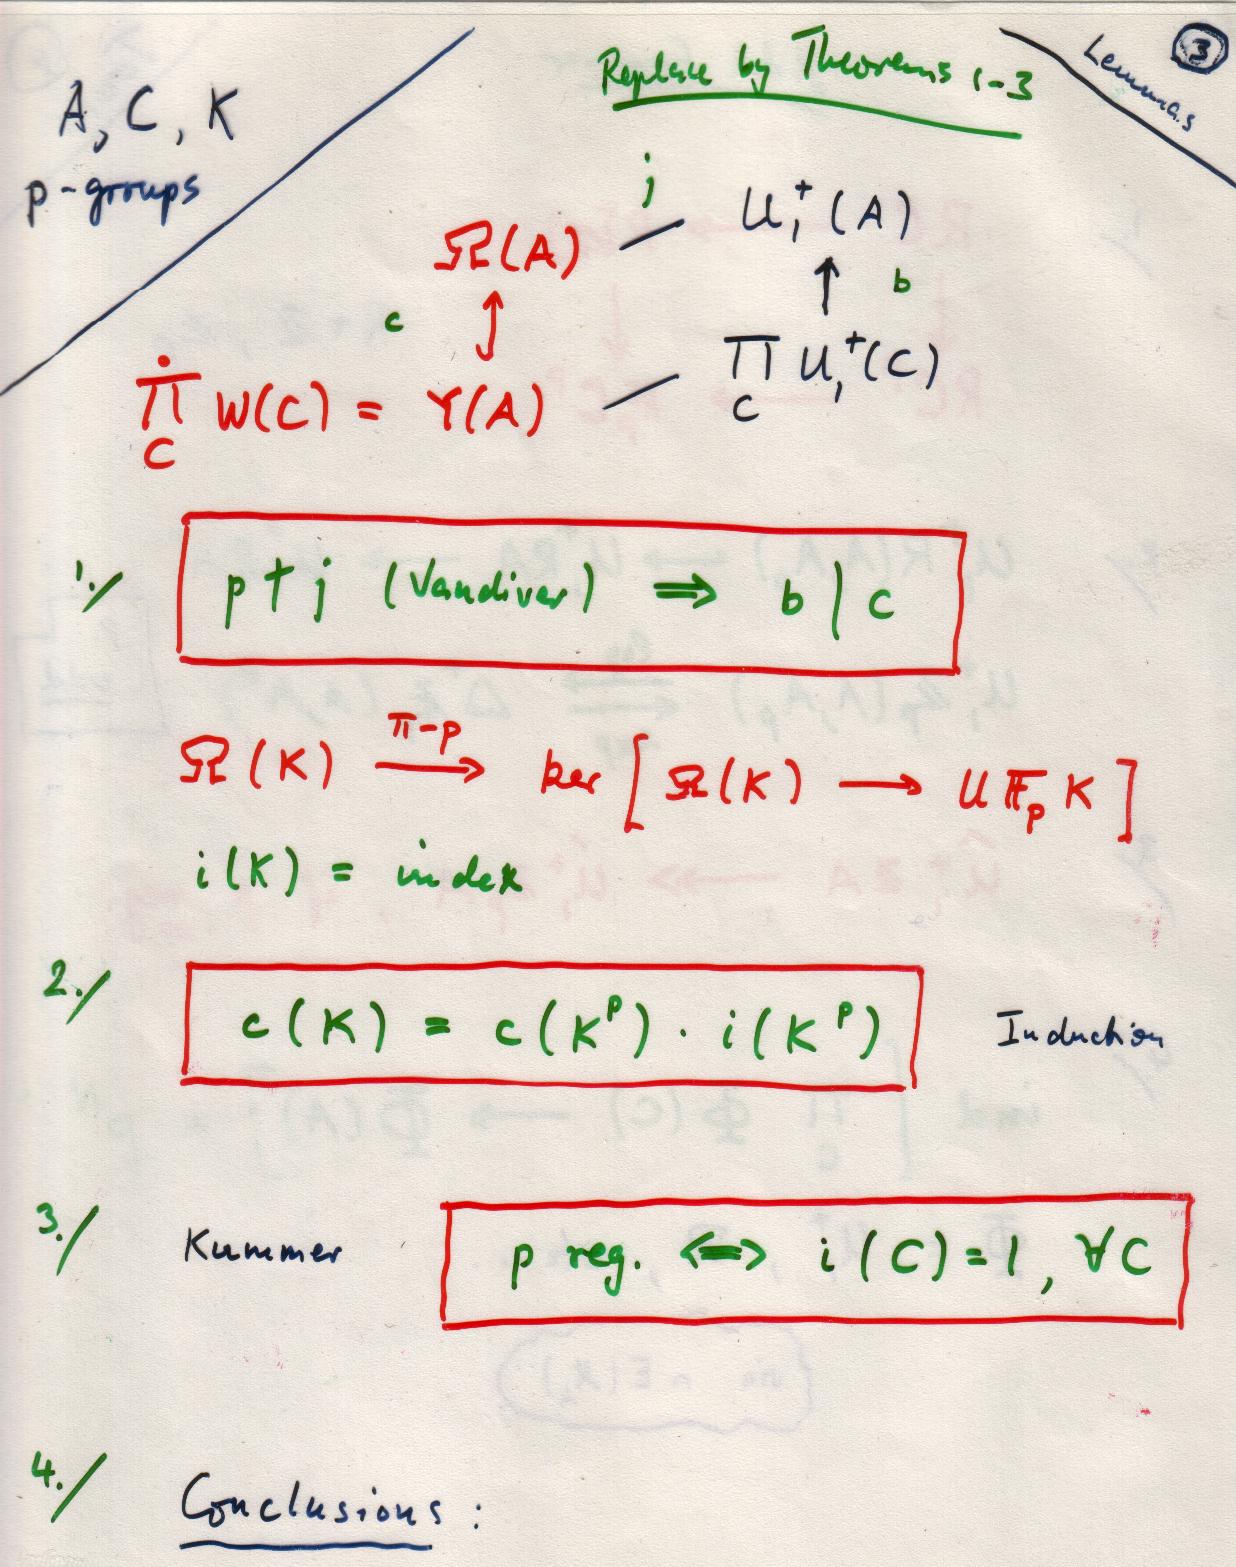 Replace by Theorems 1-3
Lemmas
3
A, C, K
p-groups
Ω(A) — j U₁⁺(A)
c ↕ ↑ b
∏̇_C W(C) = Y(A) — ∏_C U₁⁺(C)
1./ p ∤ j (Vandiver) ⟹ b | c
Ω(K) —π-p→ ker [ Ω(K) ⟶ U𝔽_p K ]
i(K) = index
2./ c(K) = c(K^p) · i(K^p) Induction
3./ Kummer p reg. ⟺ i(C) = 1, ∀C
4./ Conclusions: